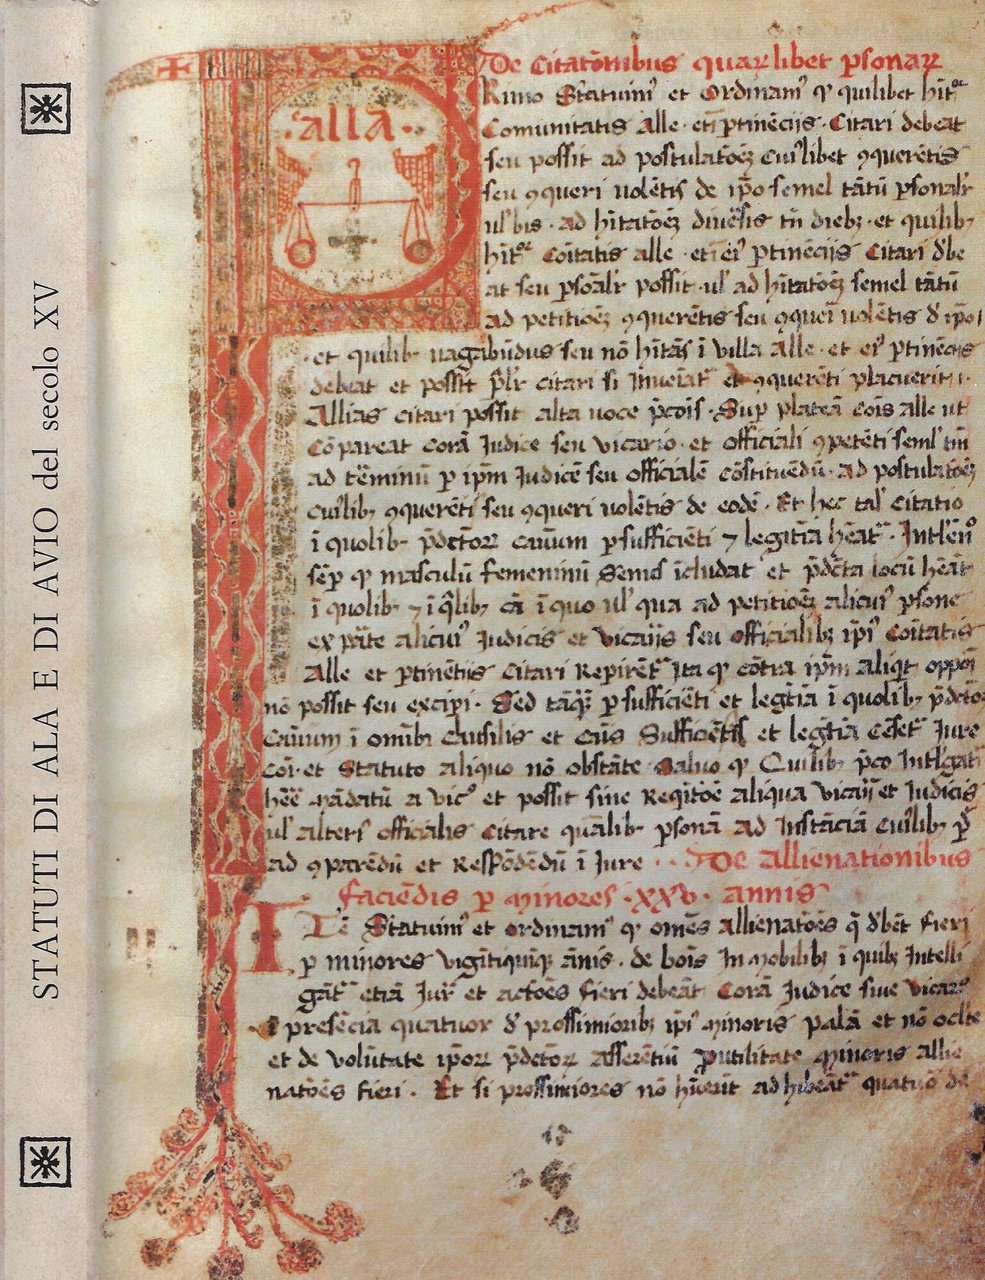 STATUTI DI ALA E DI AVIO del secolo XV
·allā·
De Citatōnibus quarlibet psonar
Rimo Statuim' et Ordinam' qr quilibet hit
Comunitatis Alle · eti ptinēcijs · Citari debeat
seu possit ad postulatōeȝ Cui'libet ꝯquerētis
seu ꝯqueri uolētis de ip̄o semel tātū psonalr
ul' bis · ad hītatōeȝ diu'sis tn̄ diebȝ · et quilibȝ
Coītatis alle · Citari d'be
at seu psōalr possit · ul' ad hītatōeȝ semel tātū
ad petitiōeȝ ꝯquerētis seu ꝯqueri uolētis d' ip̄o
· et quilibȝ uagabūdus seu nō hītās ī villa Alle · et ei' ptinēcijs
debeat et possit citari si Inueiat' et ꝯquerēti placuerit
Allias citari possit alta uoce · Sup plateā Cois alle ut
Cōpareat Corā Iudice seu vicario · et officiali ꝯpetēti
ad t'minū p ip̄m Iudicē seu officialē cōstituēdū · ad postulatōeȝ
cui'libȝ ꝯquerēti seu ꝯqueri uolētis de eodē · Et hec tal' Citatio
ī quolibȝ p̄dctorr cauum psufficiēti ⁊ legitīa hēat'
sēp qr masculū femeninū Semp īcludat et p̄dc̄ta locū hēāt
ī quolibȝ ⁊ ī q̄libȝ cā ī quo ul' qua ad petitiōeȝ alicui' psone
ex pāte alicui' Iudicis et vicarijs seu officialibȝ ip̄i' Coītatis
Alle et ptinētijs Citari Repiret' Ita qr cōtra ip̄m aliqt oppoi
nō possit seu excipi · Sed tāq̄ psufficiēti et legtīa ī quolibȝ p̄dcto
cauum ī omībȝ et Sufficiētis et legtīa Cēset' Iure
Cōi · et Statuto aliquo nō obstāte Saluo qr Quilibȝ
mādatū a vic' et possit sine Reqitōe aliqua vicarij et Iudicis
ul' alteri' officialis Citare quālibȝ psonā ad Instāciā Cui'libȝ
ad ꝯparēdū et Respōdēdū ī Iure · · De Allienationibus
faciēdis p minores · xxv · annis
Itē Statuim' et ordinam' qr omēs Allienatōēs q̄ d'bēt fieri
p minores vigītiquīqȝ ānis · de bois Inmobilibȝ ī quibȝ Intelli
gāt' etiā Iur' et actōēs fieri debeāt Corā Iudice siue vicar'
ī presēcia quatuor d' prossimioribȝ ip̄i' minoris palā et nō oclte
et de volūtate ip̄orr p̄dctorr Asserētiū putilitate minoris Allie
natōēs fieri · Et si prossimiores nō adhibeāt' quatuo' de